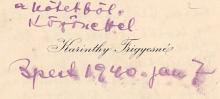 a kötetből.
Köszönettel
Karinthy Frigyesné
Bpest 1940. jan 7